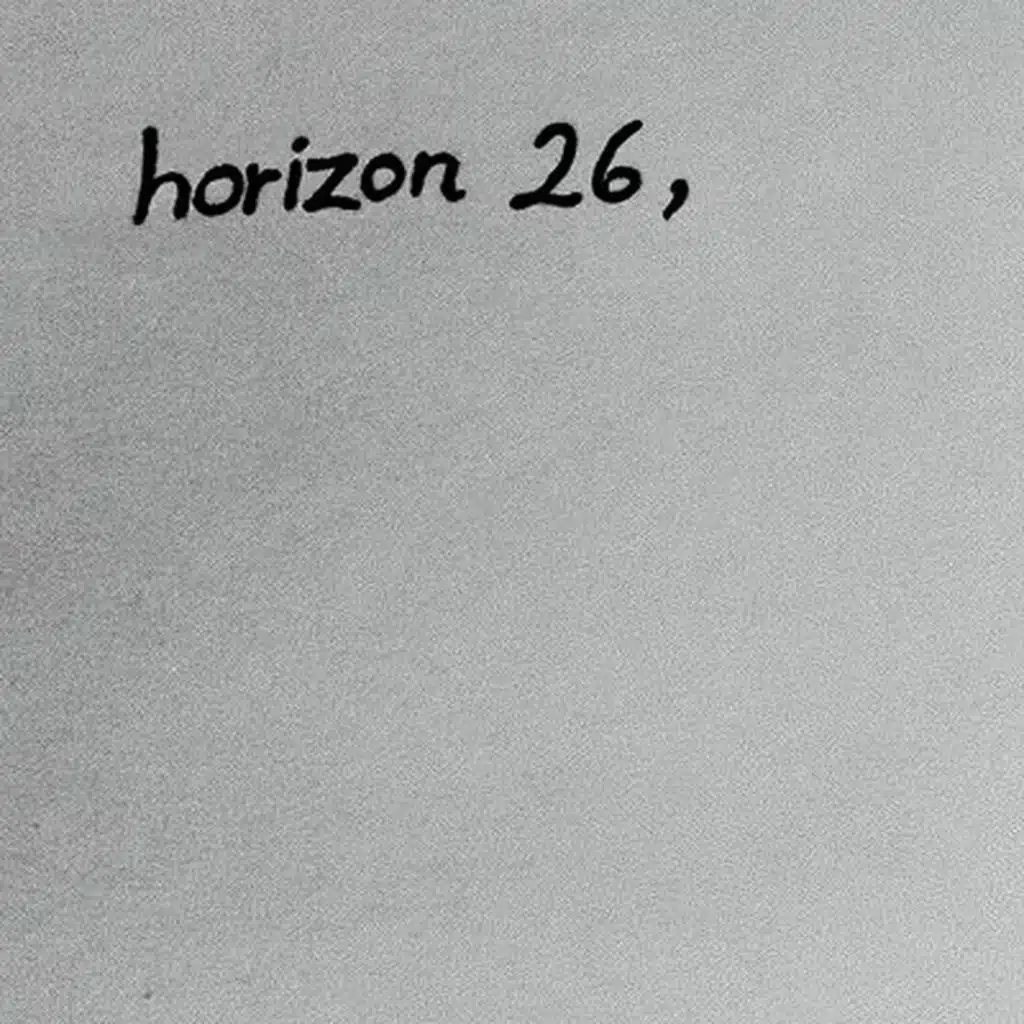 horizon 26,